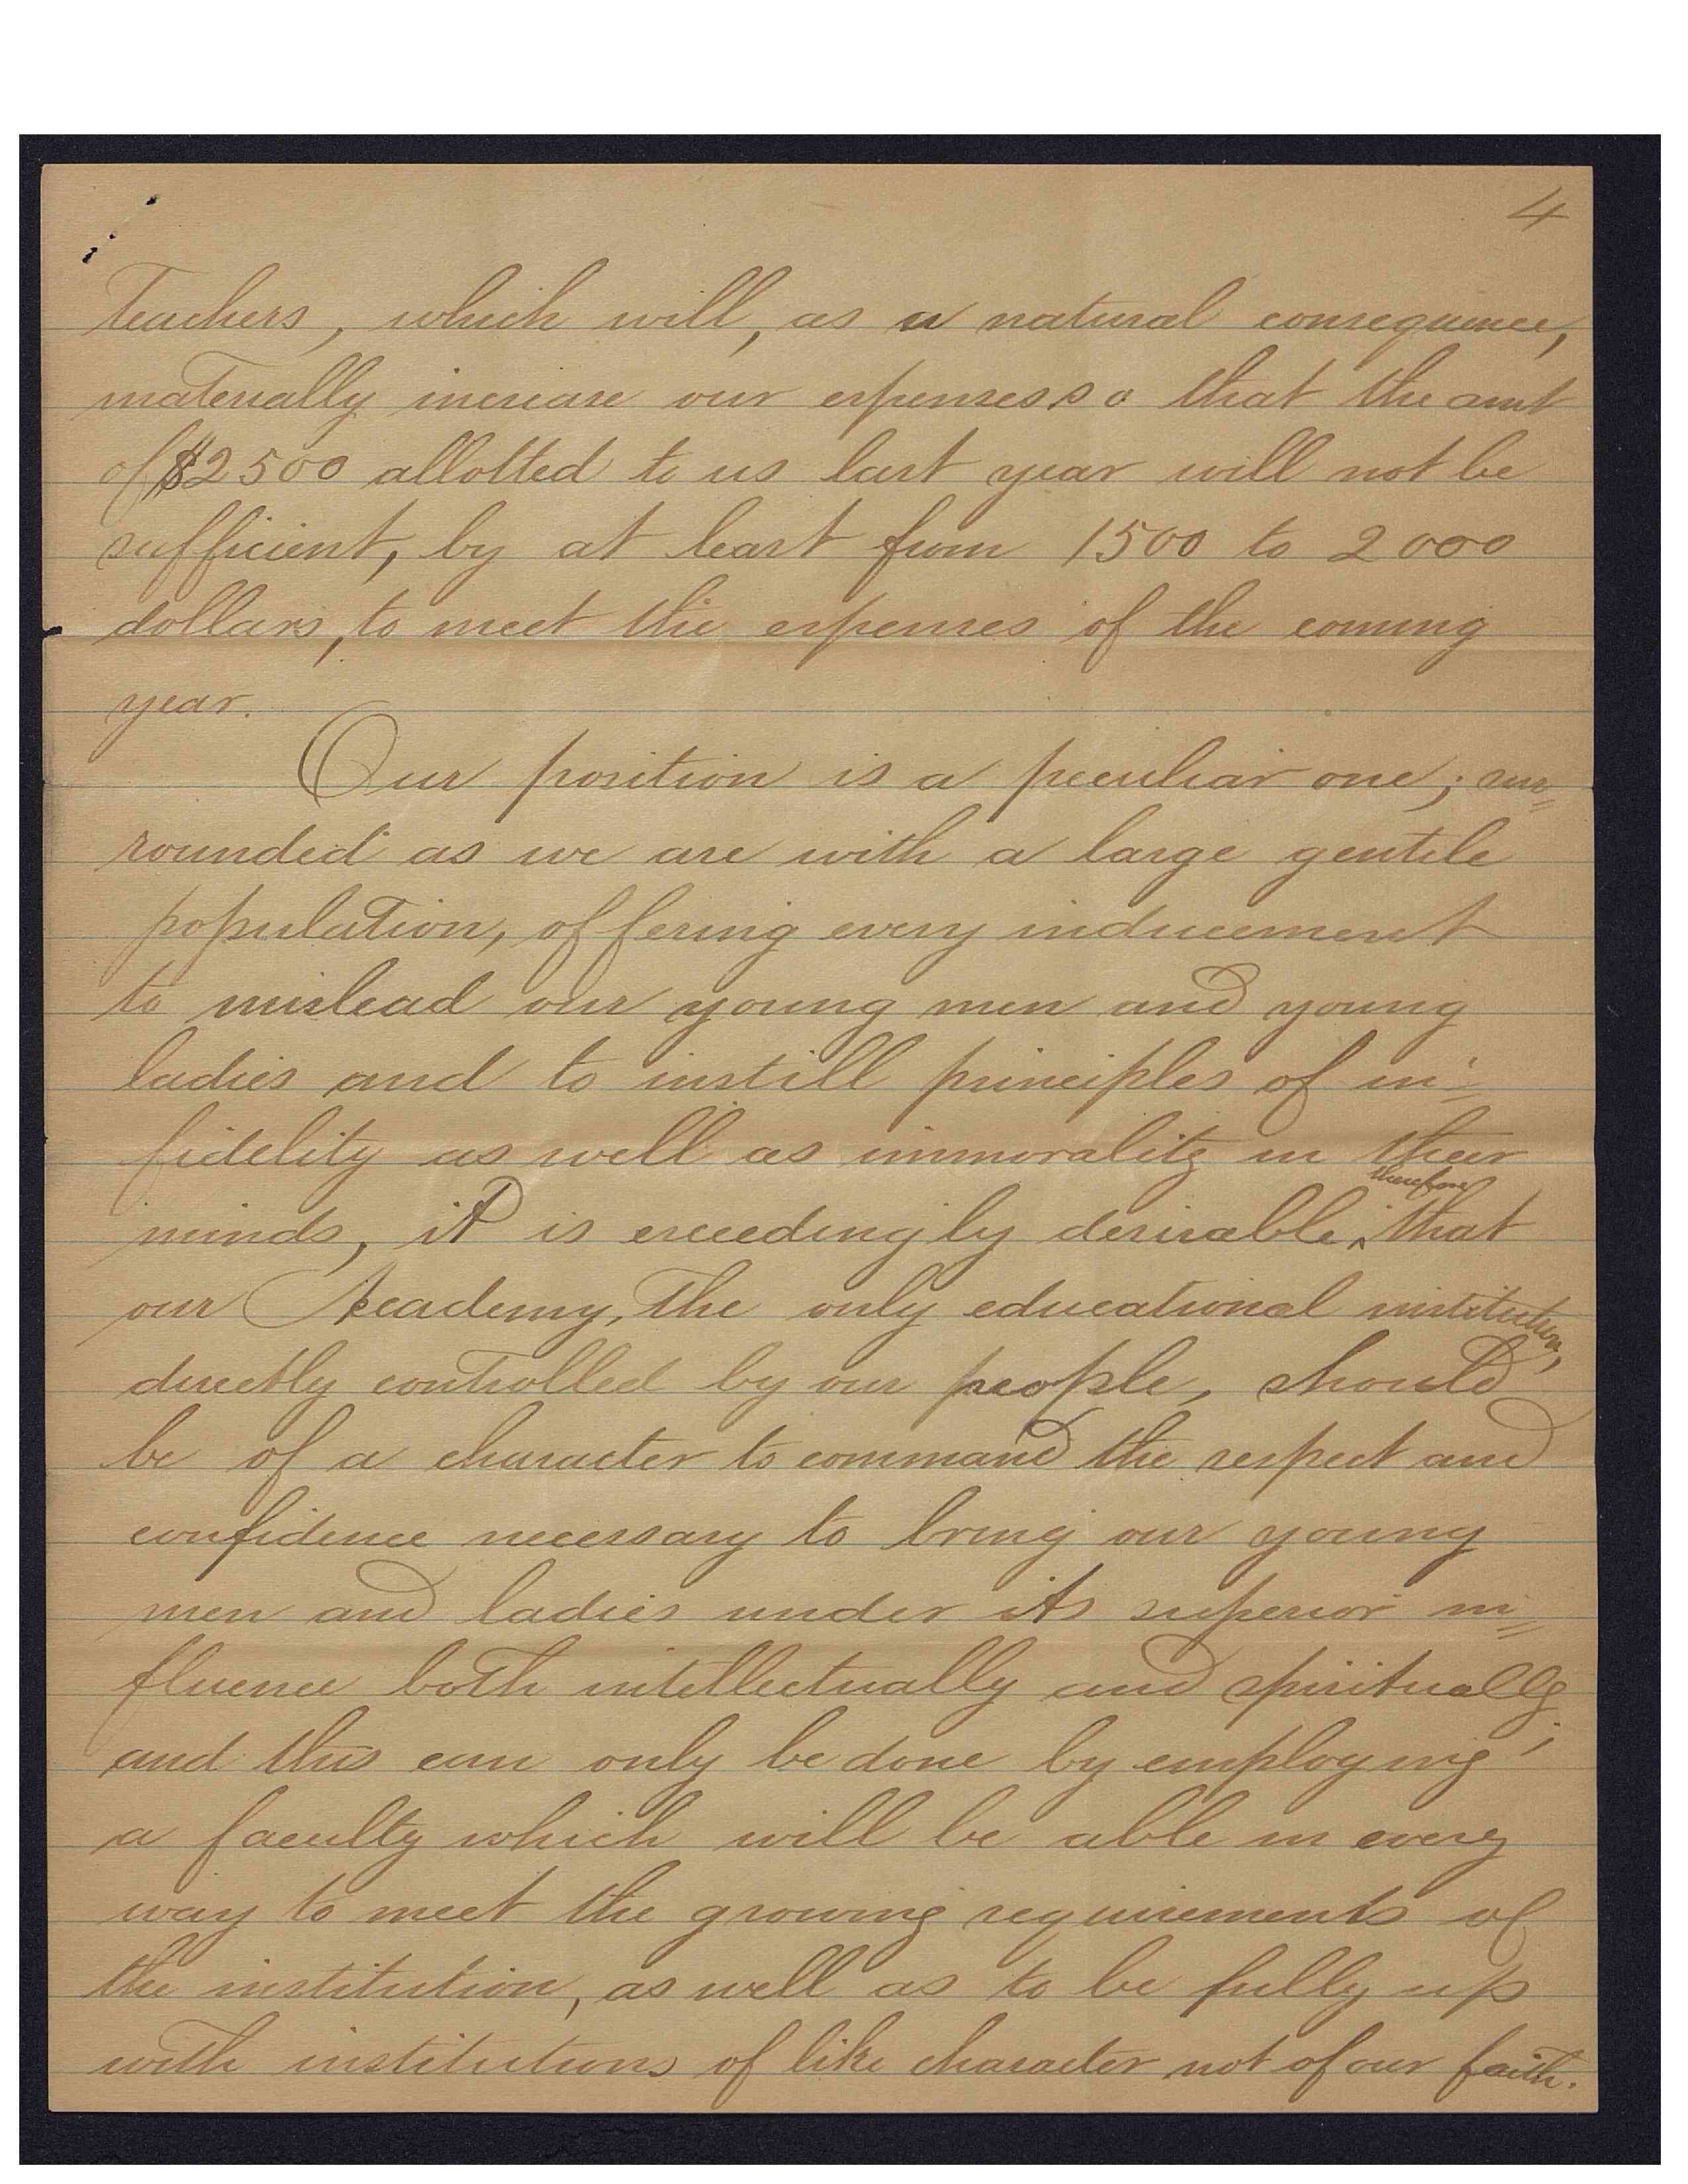 4
teachers, which will, as a natural consequence,
materially increase our expenses so that the amt
of $2500 allotted to us last year will not be
sufficient, by at least from 1500 to 2000
dollars, to meet the expenses of the coming
year.
Our position is a peculiar one; sur=
rounded as we are with a large gentile
population, offering every inducement
to mislead our young men and young
ladies and to instill principles of in=
fidelity as well as immorality in their
therefore
minds, it is exceedingly desirable ^ that
our Academy, the only educational institution,
directly controlled by our people, should
be of a character to command the respect and
confidence necessary to bring our young
men and ladies under its superior in=
fluence both intellectually and spiritually;
and this can only be done by employing
a faculty which will be able in every
way to meet the growing requirements of
the institution, as well as to be fully up
with institutions of like character not of our faith.